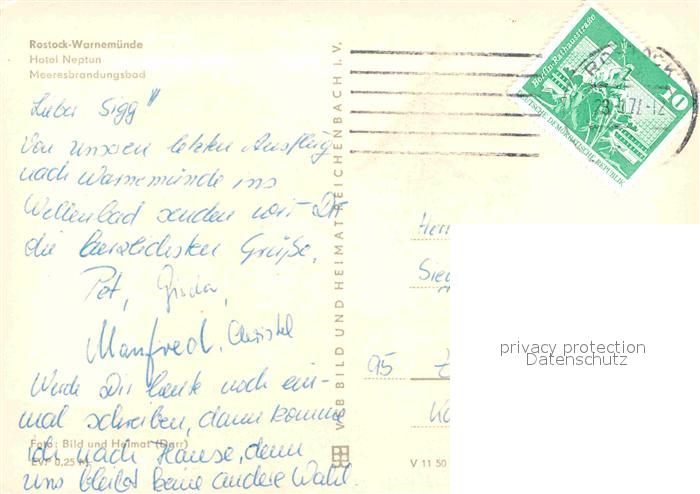 Rostock-Warnemünde
Hotel Neptun
Meeresbrandungsbad
Lieber Sigg
Von unserem letzten Ausflug
nach Warnemünde ins
Wellenbad senden wir Dir
die herzlichsten Grüße,
Pet, Gisela,
Manfred, Christel
Werde Dir heute noch ein-
mal schreiben, dann komme
ich nach Hause, denn
uns bleibt keine andere Wahl.
Foto: Bild und Heimat (Darr)
EVP 0,25 M
VEB BILD UND HEIMAT REICHENBACH I. V.
V 11 50
Berlin, Rathausstraße
10
DEUTSCHE DEMOKRATISCHE REPUBLIK
Herr
Sieg
95
privacy protection
Datenschutz